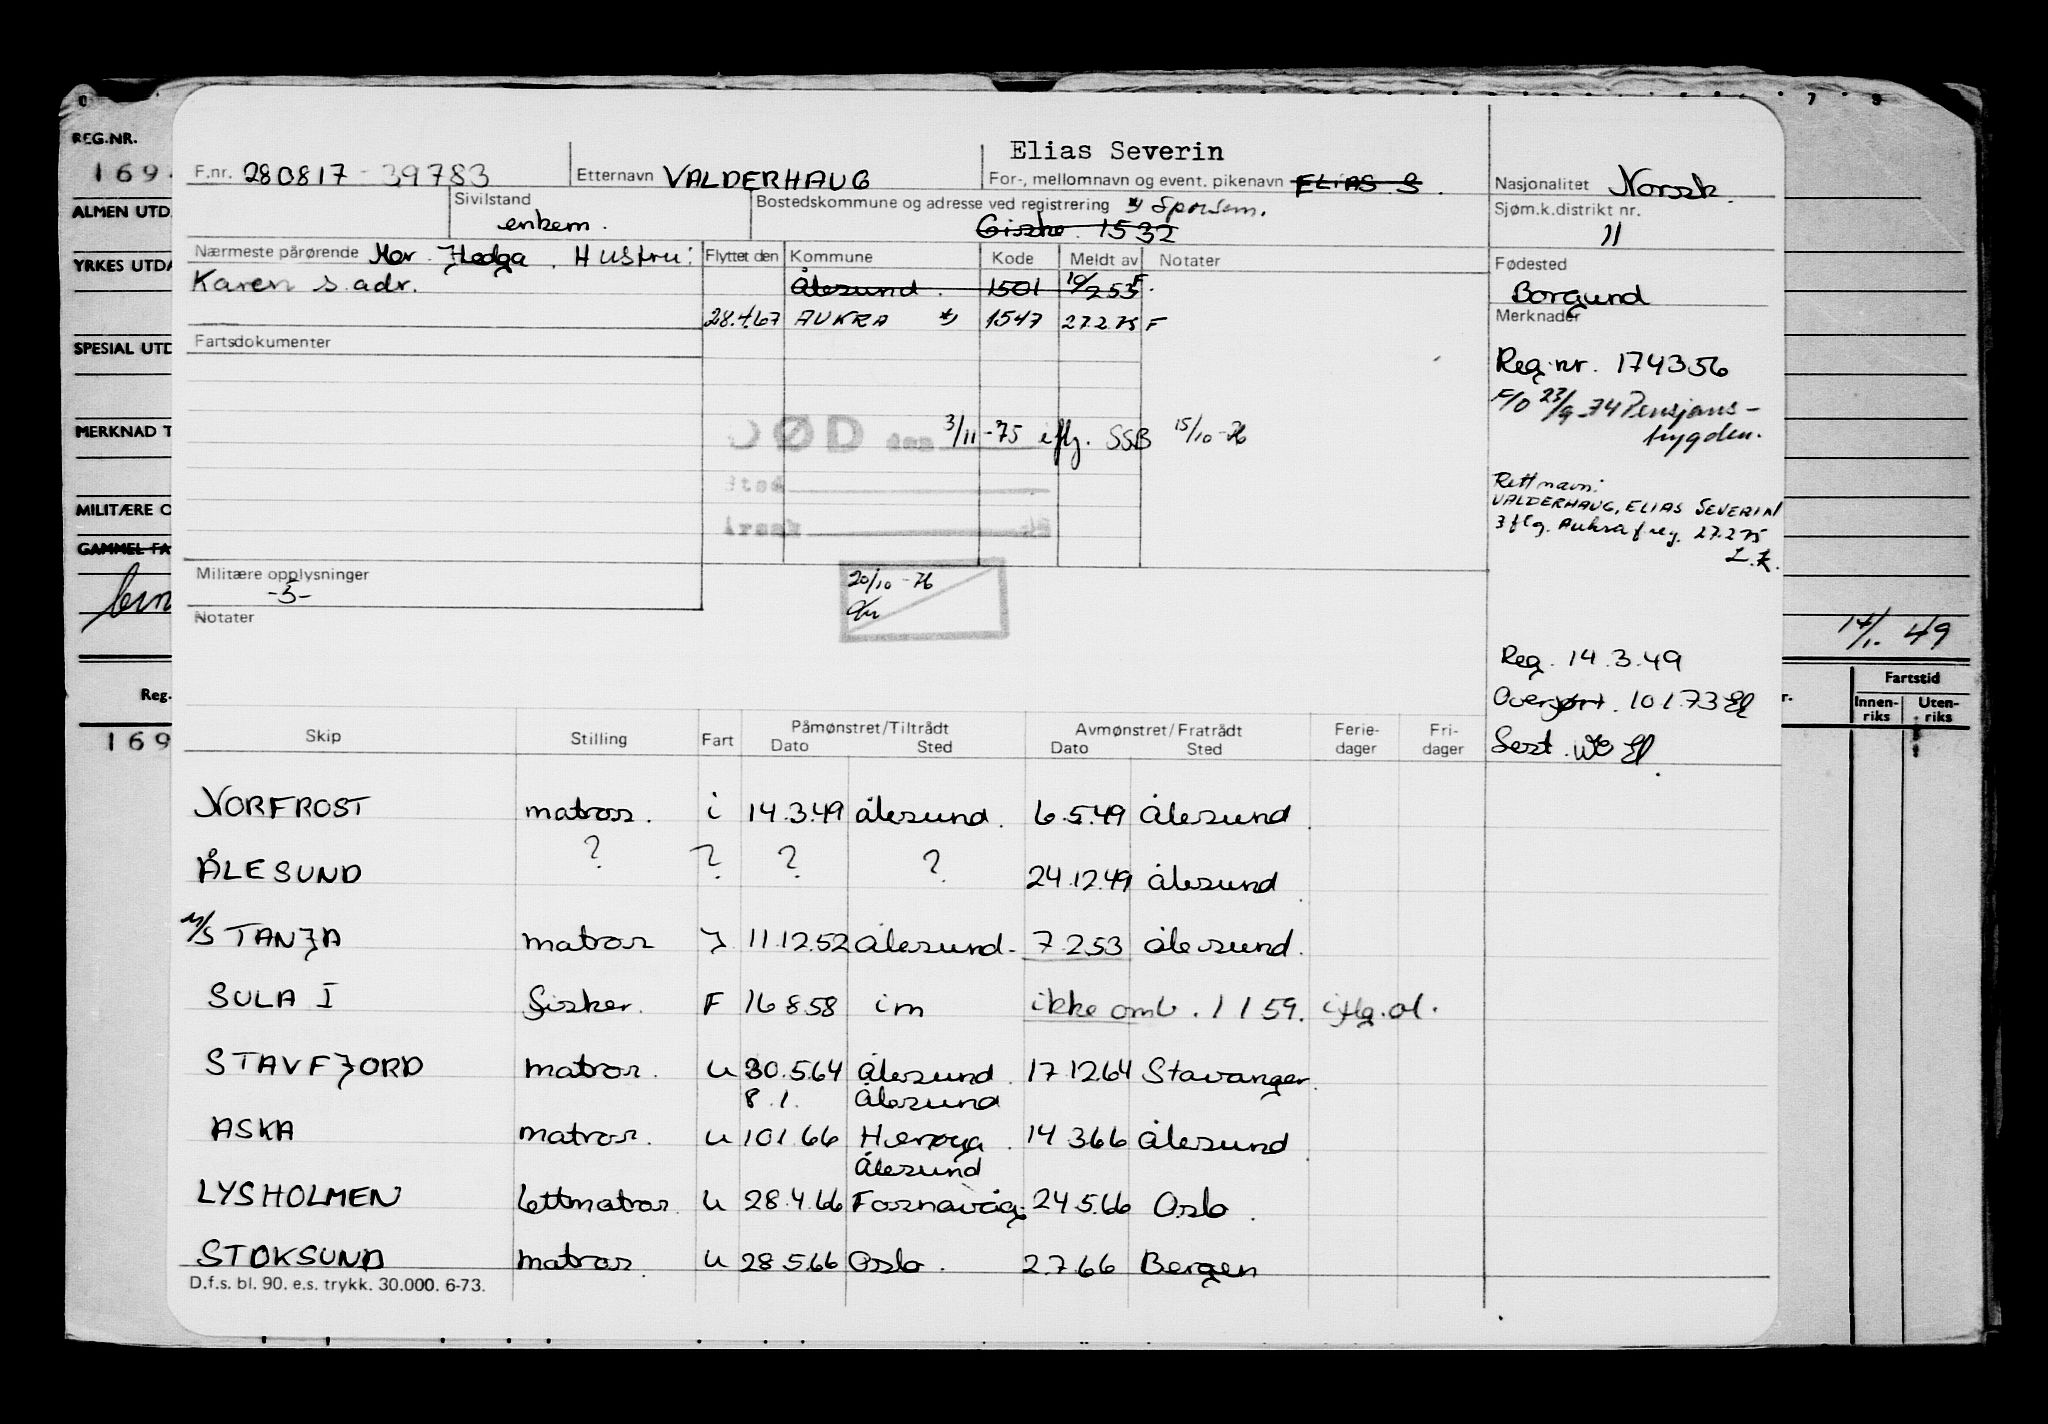 REG.NR.
169
ALMEN UTD
YRKES UTDA
SPESIAL UTD
MERKNAD T
MILITÆRE O
GAMMEL FA
Reg.
169
7 9
Elias Severin
F.nr. 280817-39783 Etternavn VALDERHAUG For-, mellomnavn og event. pikenavn ELIAS S.
Nasjonalitet Norsk.
Sivilstand enkem. Bostedskommune og adresse ved registrering *) Sporsem.
Giske. 1532
Sjøm.k.distrikt nr. 11
Nærmeste pårørende Mor Hedga. Hustru:
Karen s. adr.
Flyttet den Kommune Kode Meldt av Notater
Ålesund. 1501 10/2 53 F.
28.4.67 AUKRA *) 1547 27.2.75 F
Fødested
Borgund
Merknader
Reg.nr. 174356
F/O 23/9-74 Pensjons-
trygden.
Fartsdokumenter
DØD den 3/11-75 iflg. SSB 15/10-76
Sted
Årsak
Rett navn:
VALDERHAUG, ELIAS SEVERIN
iflg. Aukra f.reg. 27.2.75
Militære opplysninger
-3-
Notater
20/10-76
Reg. 14.3.49
Overført. 10 1.73
Sert.
14/1. 49
Fartstid
Innen-
riks
Uten-
riks
Skip Stilling Fart Påmønstret/Tiltrådt Dato Sted Avmønstret/Fratrådt Dato Sted Ferie-
dager Fri-
dager
NORFROST matros. i 14.3.49 Ålesund. 6.5.49 Ålesund.
ÅLESUND ? ? ? ? 24.12.49 Ålesund
M/S TANJA matros J 11.12.52 Ålesund. 7.2.53 Ålesund.
SULA I fisker. F 16 8 58 im ikke omb. 1 1 59. iflg. al.
STAVFJORD matros. u 30.5.64 Ålesund. 17 12.64 Stavanger.
8.1. Ålesund
ASKA matros. u 10 1 66 Herøya. 14 3.66 Ålesund
Ålesund
LYSHOLMEN lettmatros. u 28.4.66 Fosnavåg. 24.5.66 Oslo.
STOKSUND matros. u 28 5.66 Oslo. 2.7.66 Bergen
D.f.s. bl. 90. e.s. trykk. 30.000. 6-73.